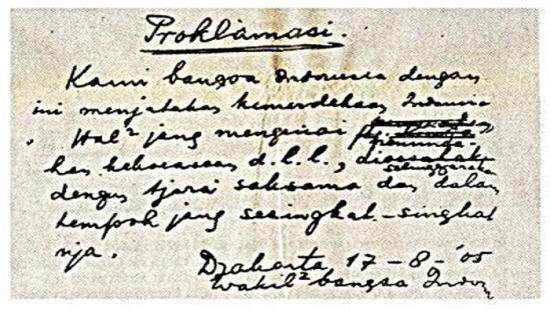 Proklamasi.
Kami bangsa Indonesia dengan
ini menjatakan kemerdekaan Indonesia
Hal² jang mengenai
pemindahan kekoeasaan d.l.l.,
diselenggarakan
dengan tjara saksama dan dalam
tempoh jang sesingkat-singkat
nja.
Djakarta 17 - 8 - '05
Wakil² bangsa Indon